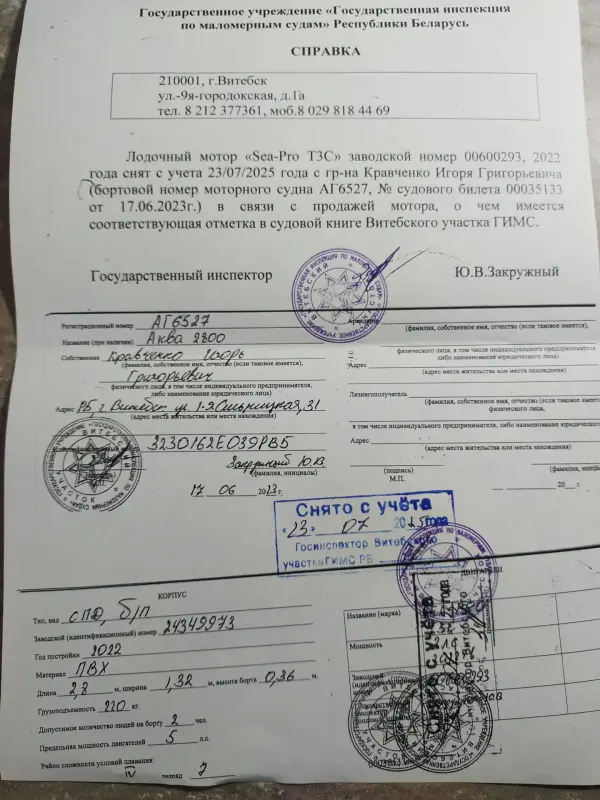 Государственное учреждение «Государственная инспекция
по маломерным судам» Республики Беларусь
СПРАВКА
210001, г.Витебск
ул.-9я-городокская, д.1а
тел. 8 212 377361, моб.8 029 818 44 69
Лодочный мотор «Sea-Pro T3C» заводской номер 00600293, 2022
года снят с учета 23/07/2025 года с гр-на Кравченко Игоря Григорьевича
(бортовой номер моторного судна АГ6527, № судового билета 00035133
от 17.06.2023г.) в связи с продажей мотора, о чем имеется
соответствующая отметка в судовой книге Витебского участка ГИМС.
Государственный инспектор Ю.В.Закружный
Регистрационный номер АГ6527
Название (при наличии) Аква 2800
Собственник Кравченко Игорь
(фамилия, собственное имя, отчество (если таковое имеется),
Григорьевич
физического лица, в том числе индивидуального предпринимателя,
либо наименование юридического лица)
Адрес РБ г. Витебск ул. 1-я
31
(адрес места жительства или места нахождения)
3230162E039PB5
Закружный Ю.В.
(фамилия, инициалы)
17 06 2023 г.
Арендатор
(фамилия, собственное имя, отчество (если таковое имеется),
физического лица, в том числе индивидуального предпринимателя
либо наименование юридического лица)
Адрес
(адрес места жительства или места нахождения)
Лизингополучатель
(фамилия, собственное имя, отчество (если таковое имеется)
физического лица,
в том числе индивидуального предпринимателя, либо наименование юридического
Адрес
(адрес места жительства или места нахождения)
(подпись) (фамилия, иниц
М.П.
20 г.
Снято с учёта
«23» 07 2025 года
Госинспектор Витебского
участка ГИМС РБ
КОРПУС
Тип, вид СПД, б/п
Заводской (идентификационный) номер 24349973
Год постройки 2022
Материал ПВХ
Длина 2,8 м, ширина 1,32 м, высота борта 0,36 м.
Грузоподъемность 220 кг.
Допустимое количество людей на борту 2 чел.
Предельная мощность двигателей 5 л.с.
Район сложности условий плавания:
IV разряд
Название (марка)
Мощность
Заводской
Снято с учёта